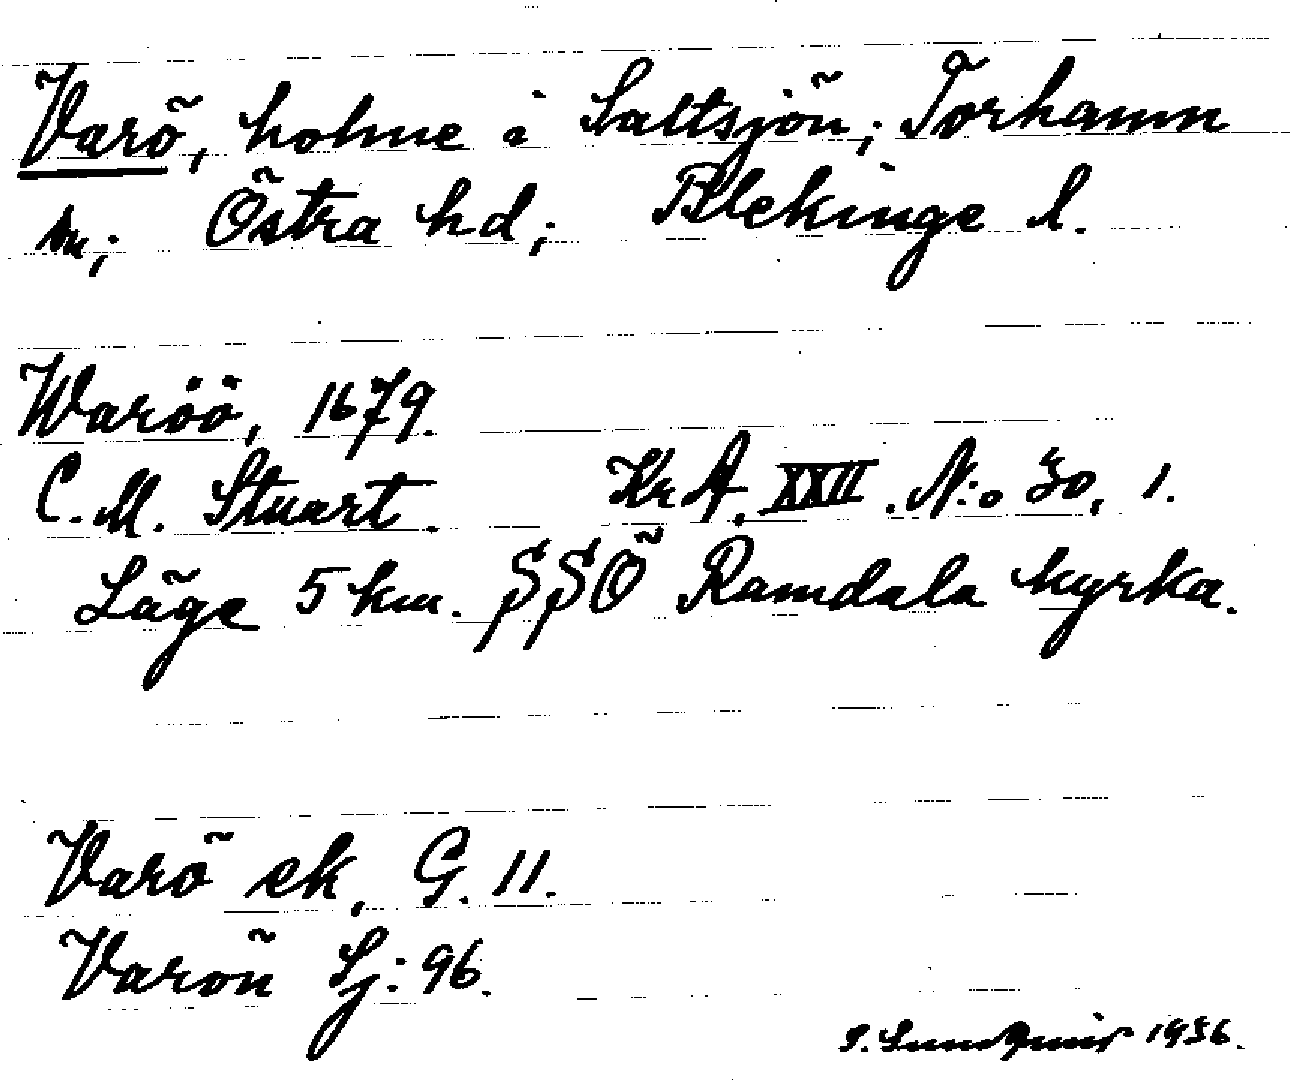 Varö, holme i Saltsjön; Torhamn
sn; Östra hd; Blekinge l.
Waröö, 1679.
C. M. Stuart. KrA, XXII. N:o 30, 1.
Läge 5 km. SSÖ Ramdala kyrka.
Varö ek, G. 11.
Varön Sj: 96.
Lundquist 1936.